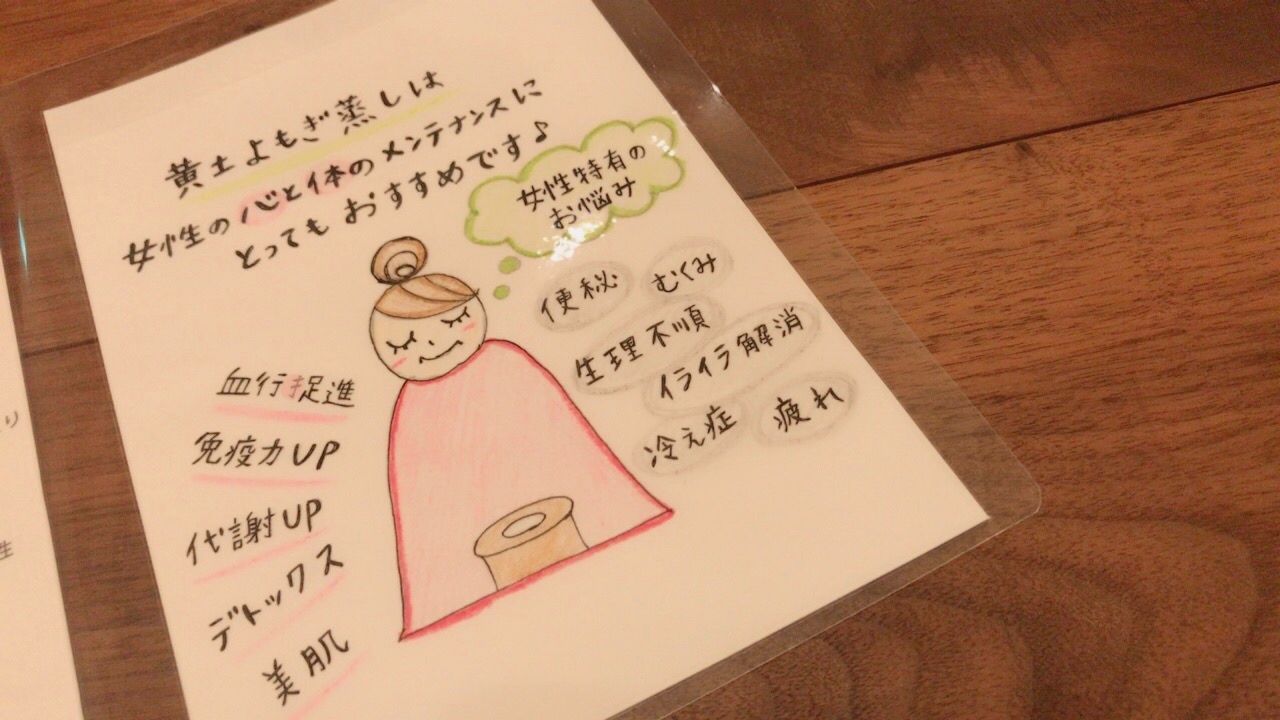 黄土よもぎ蒸しは
女性の心と体のメンテナンスに
とってもおすすめです♪
女性特有の
お悩み
便秘
むくみ
生理不順
イライラ解消
冷え症
疲れ
血行促進
免疫力UP
代謝UP
デトックス
美肌
り
性